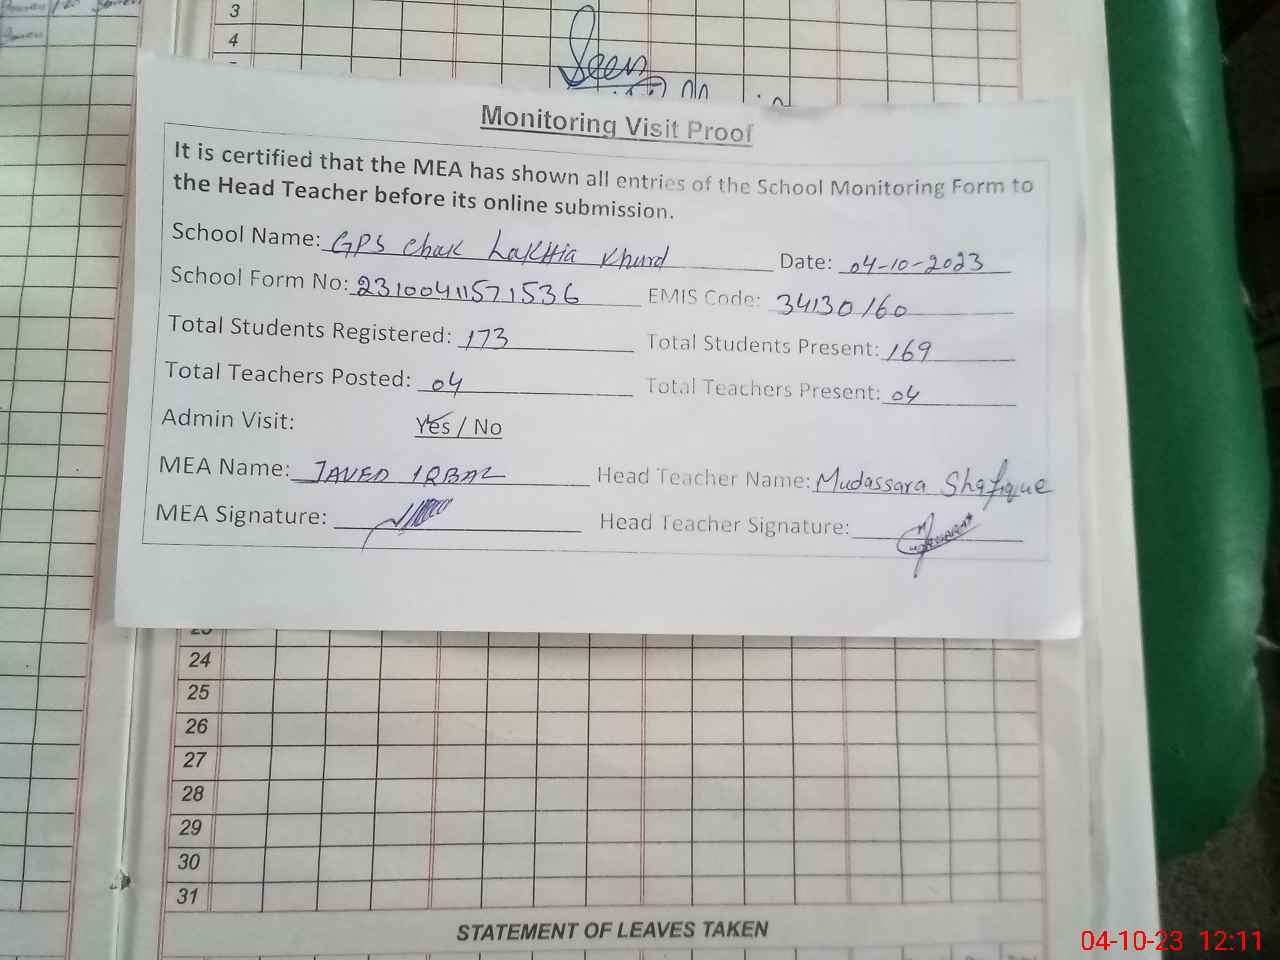 3
4
Seen
Monitoring Visit Proof
It is certified that the MEA has shown all entries of the School Monitoring Form to
the Head Teacher before its online submission.
School Name: GPS Chak Lakhia Khurd Date: 04-10-2023
School Form No: 23100411571536 EMIS Code: 34130160
Total Students Registered: 173 Total Students Present: 169
Total Teachers Posted: 04 Total Teachers Present: 04
Admin Visit: Yes / No
MEA Name: JAVED IQBAL Head Teacher Name: Mudassara Shafique
MEA Signature: Head Teacher Signature:
24
25
26
27
28
29
30
31
STATEMENT OF LEAVES TAKEN
04-10-23 12:11